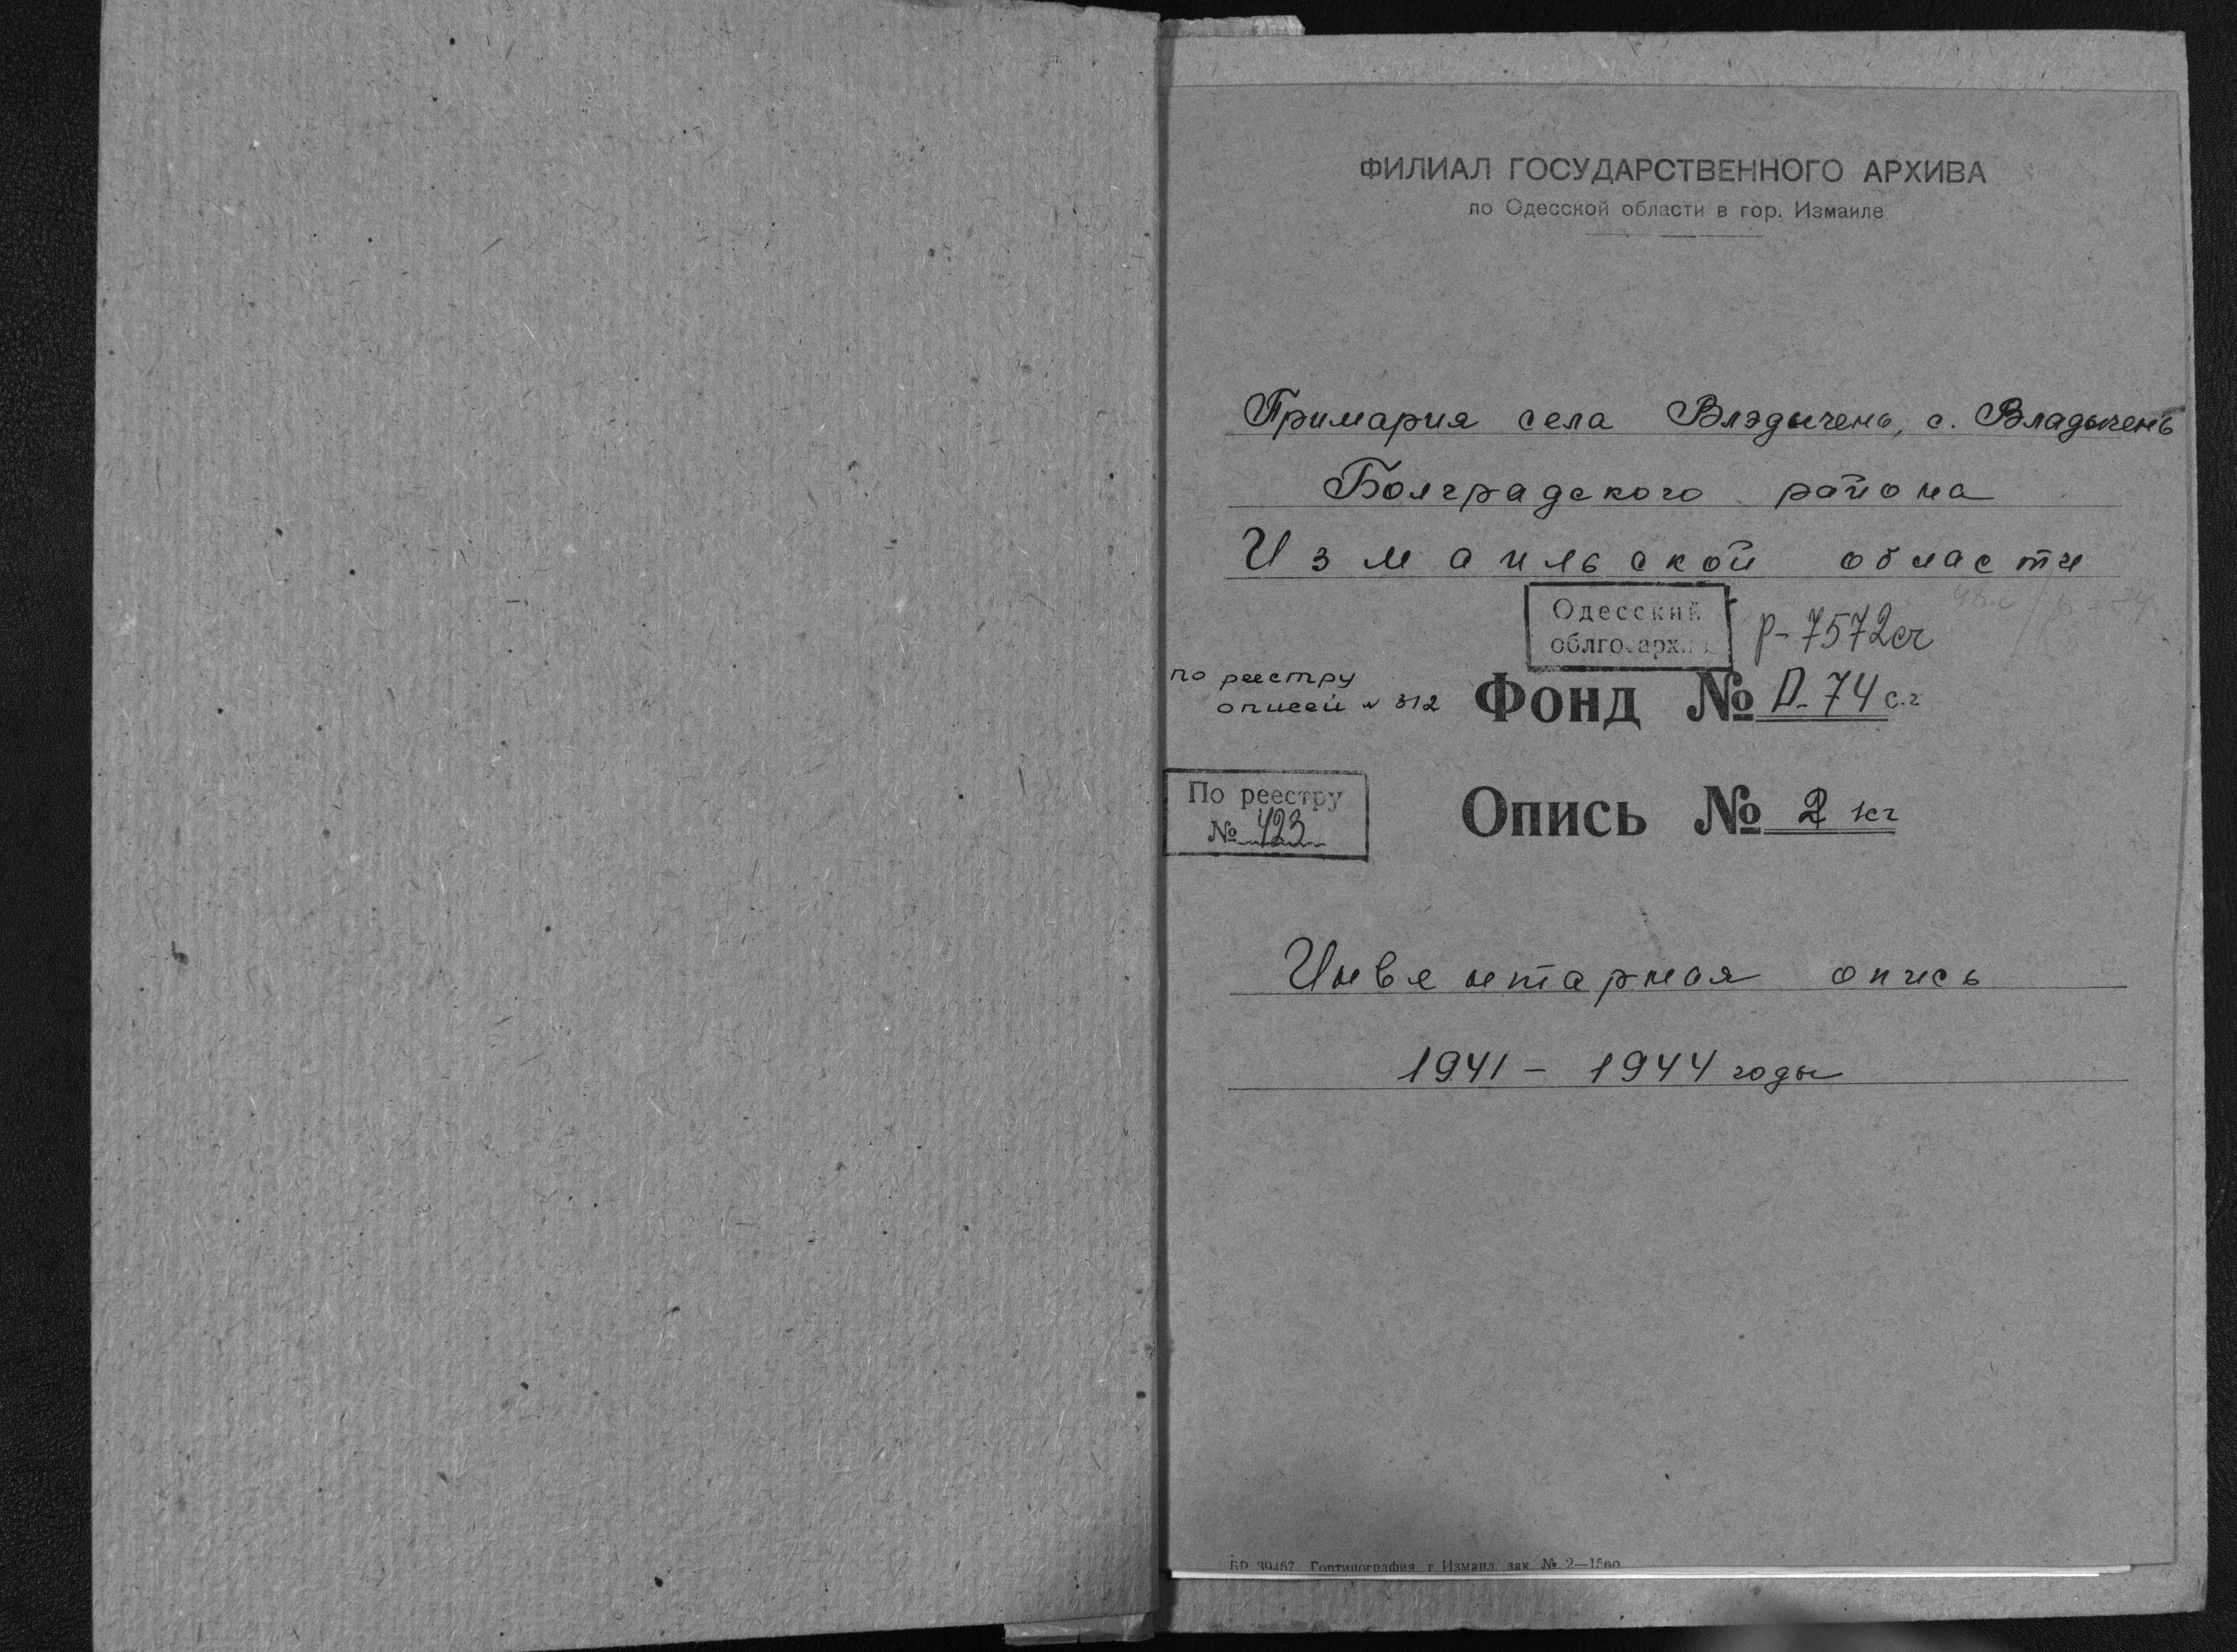 ФИЛИАЛ ГОСУДАРСТВЕННОГО АРХИВА
по Одесской области в гор. Измаиле
Примария села Влэдычень, с. Владычень
Болградского района
Измаильской области
Одесский
облгосархив
Р-7572сч
по реестру
описей № 312
Фонд № П-74 с.г
По реестру
№ 423
Опись № 2
Инвентарная опись
1941 – 1944 годы
БР 39467 Гортипография г. Измаил, зак. № 2—1500